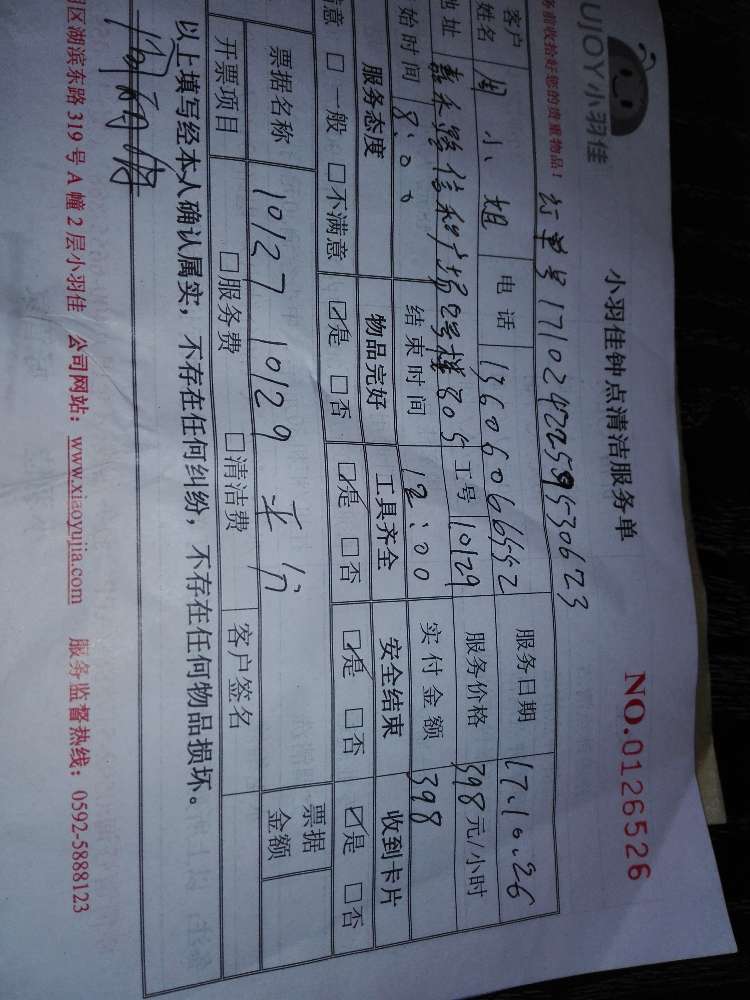 UJOY小羽佳
小羽佳钟点清洁服务单
NO.0126526
务前收拾好您的贵重物品!
订单号17102422595530623
客户姓名 周小姐 电话 13606066552 服务日期 17.10.26
地址 嘉禾路信和广场2号楼805 工号 10129 服务价格 398元/小时
始时间 8:00 结束时间 12:00 实付金额 398
服务态度 物品完好 工具齐全 安全结束 收到卡片
满意 □一般 □不满意 ☑是 □否 ☑是 □否 ☑是 □否 ☑是 □否
票据名称 10127 10129 平分 票据金额
开票项目 □服务费 □清洁费 客户签名
以上填写经本人确认属实,不存在任何纠纷,不存在任何物品损坏。
明区湖滨东路319号A幢2层小羽佳 公司网站:www.xiaoyujia.com 服务监督热线:0592-5888123